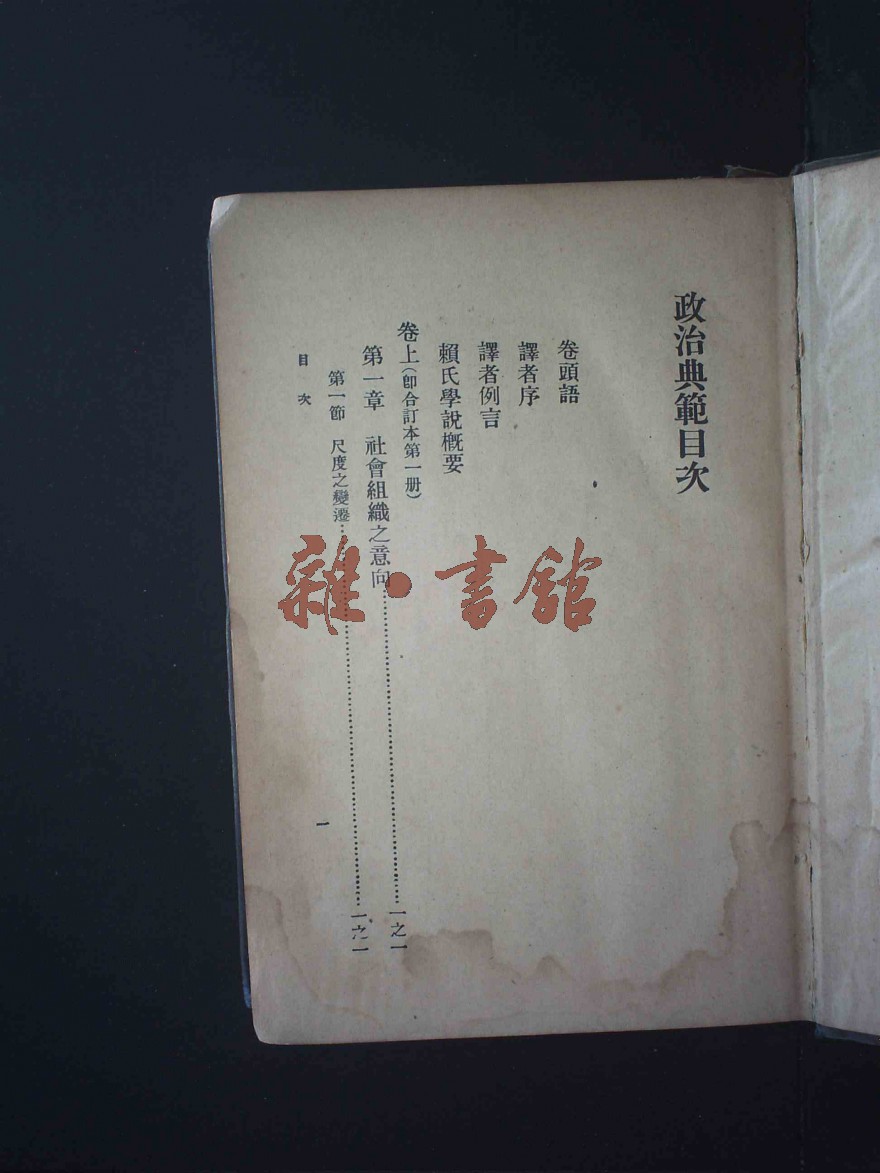 政治典範目次
卷頭語
譯者序
譯者例言
賴氏學說槪要
卷上（卽合訂本第一册）
第一章　社會組織之意向……一之一
第一節　尺度之變遷……一之一
目次
一
雜・書館